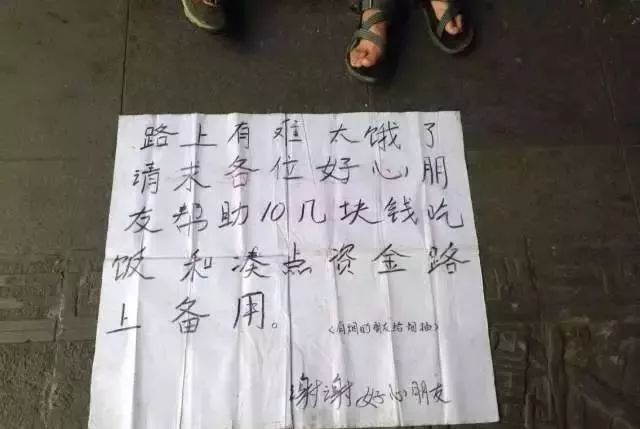 路上有难太饿了
请求各位好心朋
友帮助10几块钱吃
饭和凑点资金路
上备用。
〈有烟的朋友给烟抽〉
谢谢好心朋友